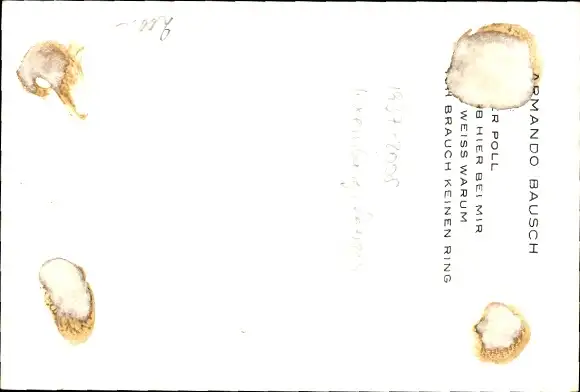 ARMANDO BAUSCH
ER POLL
B HIER BEI MIR
WEISS WARUM
CH BRAUCH KEINEN RING
1937-2005
200.-